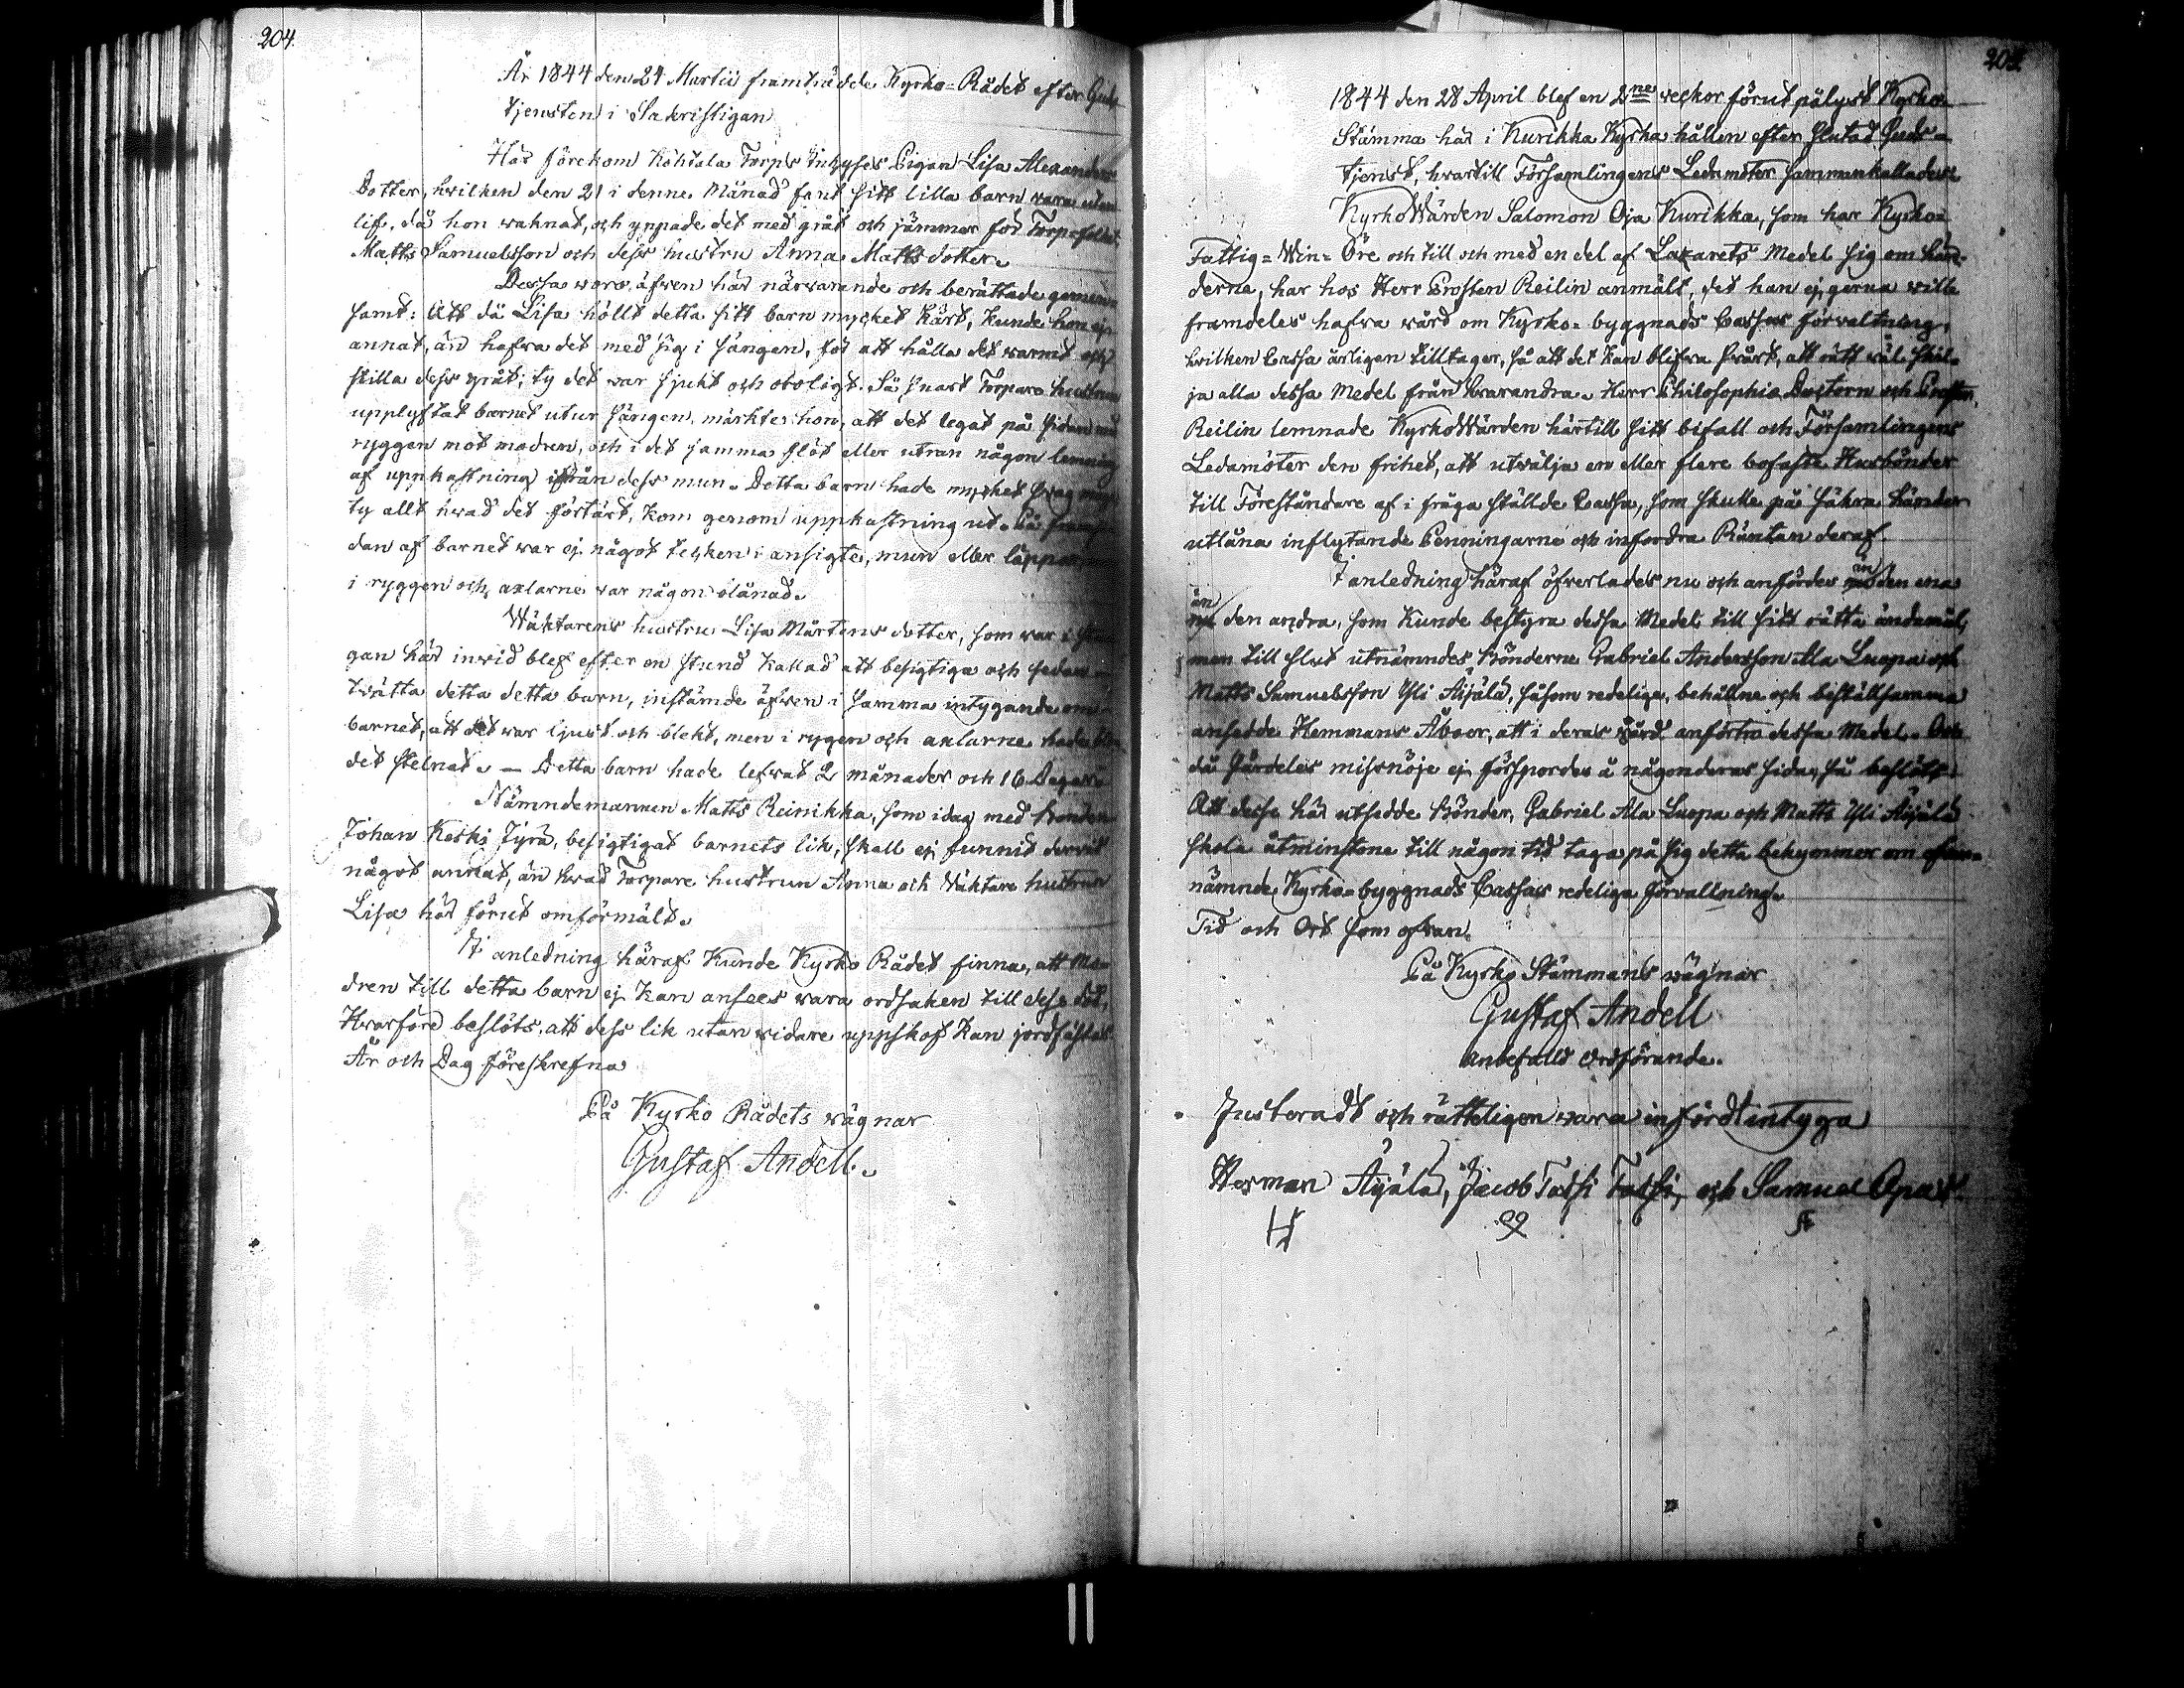 204.
År 1844 den 24 Martii framträdde Kyrko-Rådet efter Guds
tjensten i Sakristigan
Här förekom Köhtala Torps Inhyses Pigan Lisa Alexanders
Dotter, hvilken den 21 i denne Månad fant sitt lilla barn vara utan
lif, då hon waknat, och yppade det med gråt och jämmer för Torpsfolket
Matts Samuelsson och dess hustru Anna Mattsdotter.
Dessa woro äfven här närvarande och berättade gemen-
samt: Att då Lisa höllt detta sitt barn mycket kärt, kunde hon ej
annat, än hafva det med sig i sängen, för att hålla det varmt och
stilla dess gråt; ty det var sjukt och oroligt. Så snart Torpare hustrun
upplyftat barnet utur sängen, märkte hon, att det legat på sidan med
ryggen mot modren, och i det samma flöt eller utran någon lemning
af uppkastning ifrån dess mun. Detta barn hade mycket svag mage
ty allt hvad det förtärt, kom genom uppkastning ut. På fram
dan af barnet war ej något tecken i ansigte, mun eller läppar,
i ryggen och axlarne var någon blånad.
Wäktarens hustru Lisa Mårtens dotter, som war i
gan här invid blef efter en stund kallad att besigtiga och sedan
twätta detta detta barn, instämde äfven i samma intygande om
barnet, att det war ljust och blekt, men i rygen och axlarne hade blo-
det stelnat. — Detta barn hade lefvat 2 månader och 16 Dagar.
Nämndemannen Matts Reinikka, som idag med bonden
Johan Keski Jyrä, besigtigat barnets lik, skall ej funnit dervid
något annat, än hvad Torpare hustrun Anna och Väktare hustrun
Lisa här förut omförmält.
I anledning häraf kunde Kyrko Rådet finna, att Mo-
dren till detta barn ej kan ansees vara ordsaken till dess död,
Hvarföre beslöts, att dess lik utan widare uppskof kan jordfästas
År och Dag föreskrefna
På Kyrko Rådets wägnar
Gustaf Andell.
205.
1844 den 28 April blef en 2ne veckor förut pålyst Kyrko-
Stämma här i Kurikka Kyrka hållen efter slutad Guds-
tjenst, hvartill Församlingens Ledamöter sammankallades.
KyrkoWärden Salomon Oja Kurikka, som har Kyrko-
Fattig-Win-Öre och till och med en del af Lazarets Medel sig om hän-
derne, har hos Herr Prosten Reilin anmält, det han ej gerna wille
framdeles hafva wård om Kyrko-byggnads Cassas förvaltning,
hvilken Cassa årligen tilltager, så att det kan blifva svårt, att rätt wäl skil-
ja alla dessa Medel från hvarandra. Herr Philosophiæ Doctorn och Prosten
Reilin lemnade KyrkoWärden härtill sitt bifall och Församlingens
Ledamöter den frihet, att utwälja en eller flere bofaste Husbönder
till Föreståndare af i fråga ställde Cassa, som skulle på säkra händer
utlåna inflytande Penningarne och infordra Räntan deraf.
I anledning häraf öfverlades nu och anfördes än den ena
än den andra, som kunde bestyra dessa Medel till sitt rätta ändamål,
men till slut utnämndes Bönderne Gabriel Andersson Ala Luopa och
Matts Samuelsson Yli Äijälä, såsom redelige, behållne och beställsamma
ansedde Hemmans Åboer, att i deras vård anförtro dessa Medel. Och
då särdeles missnöje ej försPordes å någonderas sida, så beslöts:
Att desse här utsedde Bönder, Gabriel Ala Luopa och Matts Yli Äijälä
skola åtminstone till någon tid taga på sig detta bekymmer om ofvan-
nämnde Kyrko-byggnads Cassas redeliga förvaltning.
Tid och Ort som ofvan.
På Kyrko Stämmans wägnar
Gustaf Andell
anbefalld ordförande.
Justeradt och rätteligen vara infördt intyga
Herman Äijälä, Jacob Tassi Tassi, och Samuel